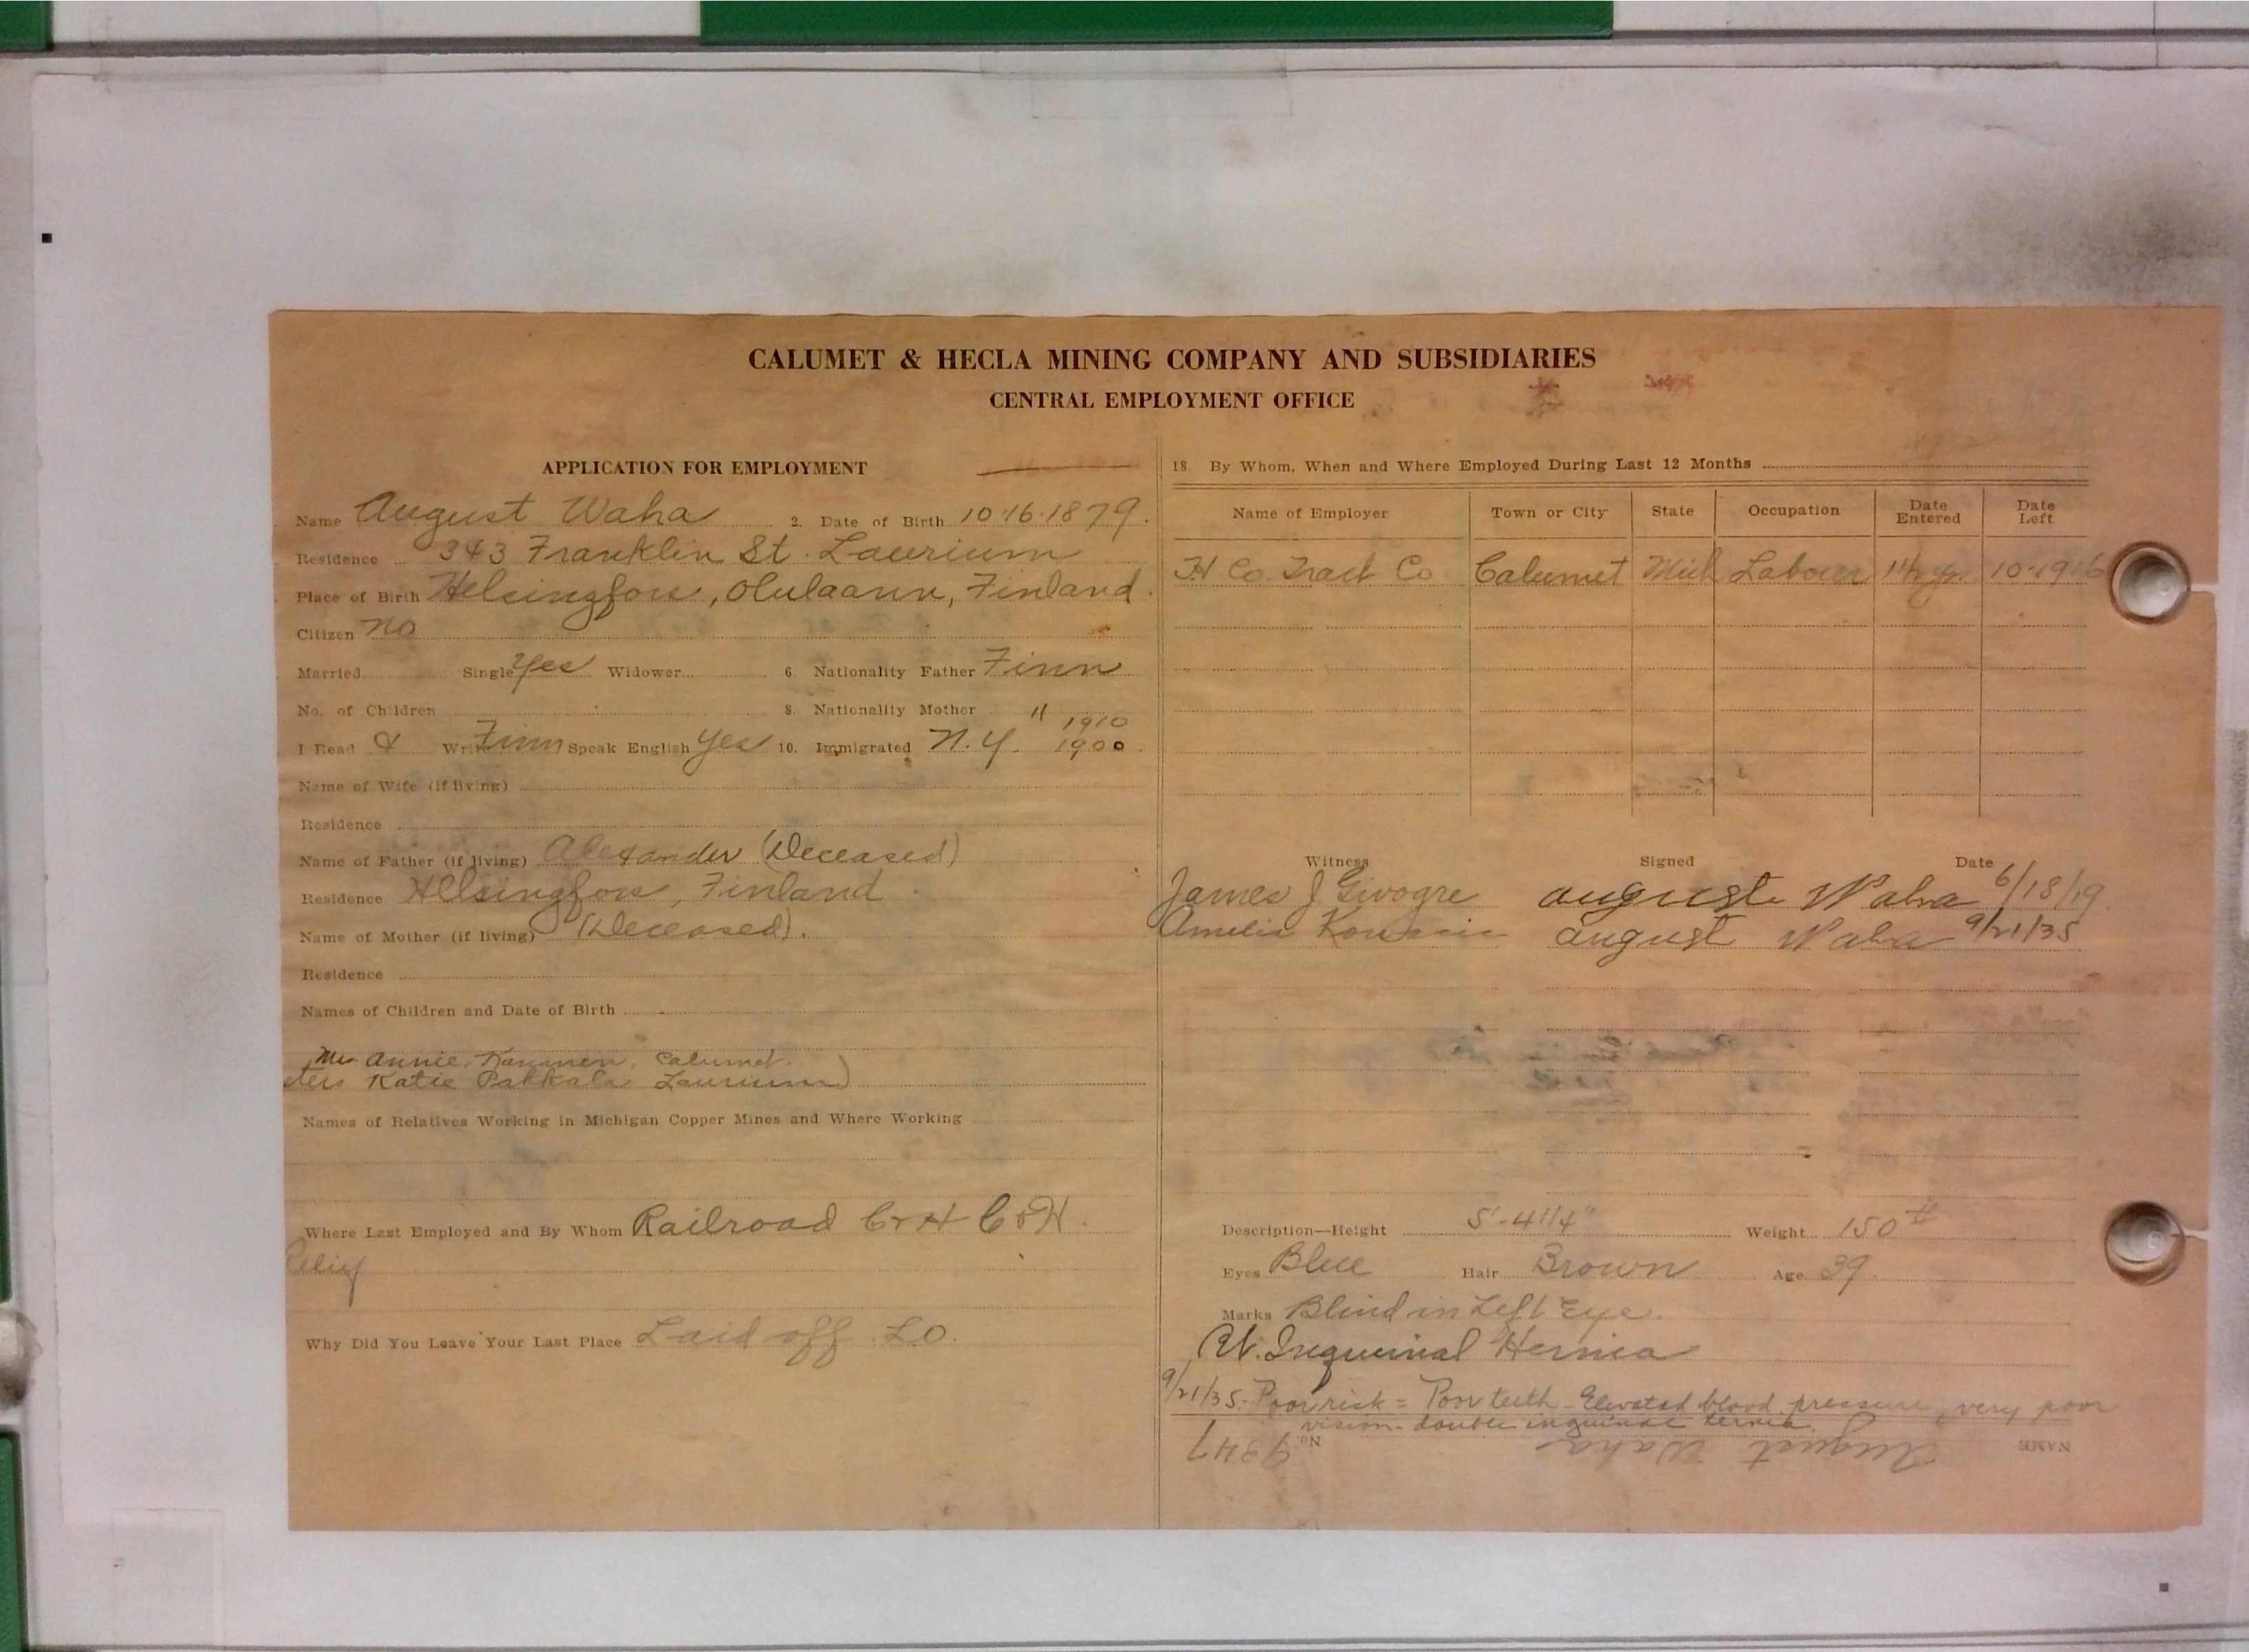 CALUMET & HECLA MINING COMPANY AND SUBSIDIARIES
CENTRAL EMPLOYMENT OFFICE
APPLICATION FOR EMPLOYMENT
Name August Waha 2. Date of Birth 10-16-1879.
Residence 343 Franklin St. Laurium
Place of Birth Helsingfors, Olulaann, Finland.
Citizen No
Married Single Yes Widower 6. Nationality Father Finn
No. of Children 8. Nationality Mother "
1910
I Read & Write Finn Speak English Yes 10. Immigrated N.Y. 1900
Name of Wife (if living)
Residence
Name of Father (if living) Alexander (Deceased)
Residence Helsingfors, Finland
Name of Mother (if living) (Deceased).
Residence
Names of Children and Date of Birth
Mrs Annie, Calumet.
Katie Pakkala Laurium)
Names of Relatives Working in Michigan Copper Mines and Where Working
Where Last Employed and By Whom Railroad C+H C+H.
Why Did You Leave Your Last Place Laid off. L.O.
18. By Whom, When and Where Employed During Last 12 Months
Name of Employer Town or City State Occupation Date Entered Date Left
H Co. Tract Co Calumet Mich Laborer 1½ yrs 10-1916
Witness Signed Date
James J Givogre August Waha 6/18/19
Amelia August Waha 9/21/35
Description—Height 5'-4 1/4" Weight 150#
Eyes Blue Hair Brown Age 39.
Marks Blind in Left Eye.
Rt. Inguinal Hernia
9/21/35-Poor risk = Poor teeth - Elevated blood pressure, very poor
vision - double inguinal hernia.
NAME August Waha No